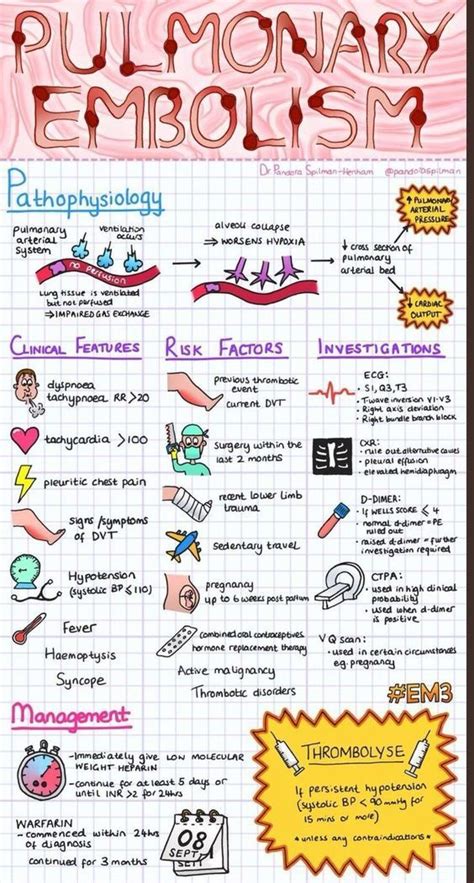 PULMONARY
EMBOLISM
Dr Pandora Spilman-Henham @pandoraspilman
Pathophysiology
Pulmonary
arterial
system
ventilation
occurs
no perfusion
Lung tissue is ventilated
but not perfused
⇒ IMPAIRED GAS EXCHANGE
alveoli collapse
⇒ WORSENS HYPOXIA
↓ cross section of
pulmonary
arterial bed
↑ PULMONARY
ARTERIAL
PRESSURE
↓ CARDIAC
OUTPUT
CLINICAL FEATURES
dyspnoea
tachypnoea RR >20
tachycardia >100
pleuritic chest pain
signs/symptoms
of DVT
Hypotension
(systolic BP ≤110)
Fever
Haemoptysis
Syncope
RISK FACTORS
previous thrombotic
event
current DVT
Surgery within the
last 2 months
recent lower limb
trauma
Sedentary travel
pregnancy
up to 6 weeks post partum
combined oral contraceptives
hormone replacement therapy
Active malignancy
Thrombotic disorders
INVESTIGATIONS
ECG:
• S1, Q3, T3
• T-wave inversion V1-V3
• Right axis deviation
• Right bundle branch block
CXR:
• rule out alternative causes
• pleural effusion
• elevated hemidiaphragm
D-DIMER:
• If WELLS SCORE ≤ 4
• normal d-dimer = PE
ruled out
• raised d-dimer = further
investigation required
CTPA:
• used in high clinical
probability
• used when d-dimer
is positive
VQ scan:
• used in certain circumstances
eg. pregnancy
#EM3
Management
-Immediately give LOW MOLECULAR
WEIGHT HEPARIN
-continue for at least 5 days or
until INR >2 for 24hrs
WARFARIN
-commenced within 24hrs
of diagnosis
continued for 3 months
08
SEPT
SET!
THROMBOLYSE
If persistent hypotension
(systolic BP <90 mmHg for
15 mins or more)
* unless any contraindications *